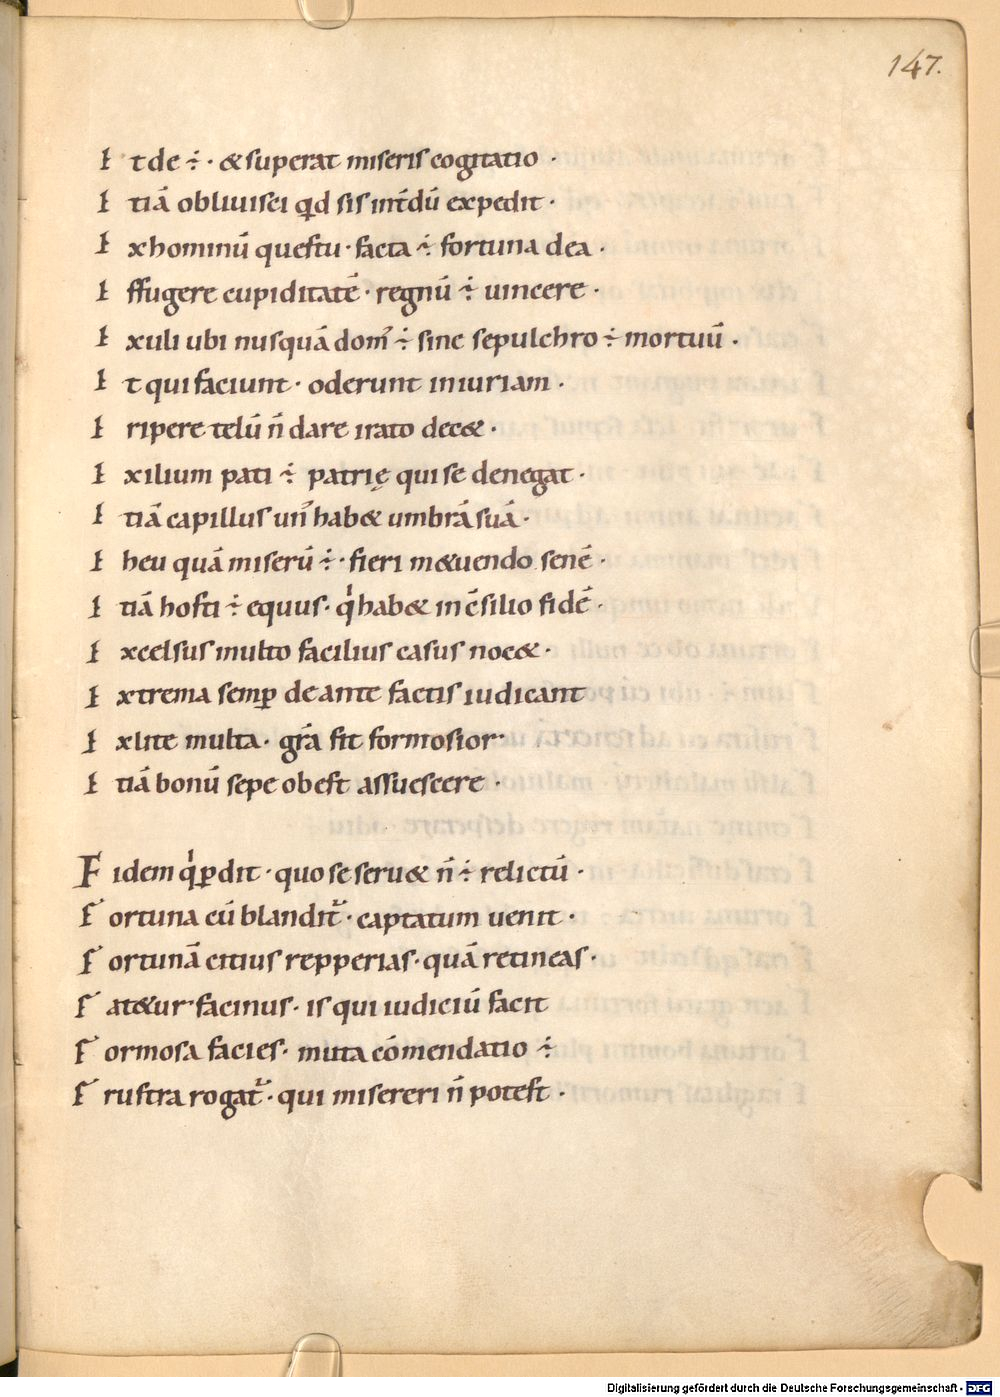 147.
E t de ÷ · & superat miseris cogitatio ·
E tiā obliuisci qd sis int̄dū expedit ·
E x hominū questu · facta ÷ fortuna dea ·
E ffugere cupiditatē · regnū ÷ uincere ·
E xuli ubi nusquā dom̄ ÷ sine sepulchro ÷ mortuū ·
E t qui faciunt · oderunt iniuriam ·
E ripere telū n̄ dare irato dec& ·
E xilium pati ÷ patrię qui se denegat ·
E tiā capillus un̄ hab& umbrā suā ·
E heu quā miserū ÷ · fieri m&uendo senē ·
E tiā hosti ÷ equus · q hab& in c̄silio fidē ·
E xcelsus multo facilius casus noc& ·
E xtrema semp̱ de ante factis iudicant
E x lite multa · gr̄a fit formosior ·
E tiā bonū sepe obest assuescere ·
F idem q p̱dit · quo se seru& n̄ ÷ relictū ·
F ortuna cū blandit᷑ · captatum uenit ·
F ortunā citius repperias · quā retineas ·
F at&ur facinus · is qui iudiciū facit
F ormosa facies · muta cōmendatio ÷
F rustra rogat᷑ · qui misereri n̄ potest ·
Digitalisierung gefördert durch die Deutsche Forschungsgemeinschaft - DFG